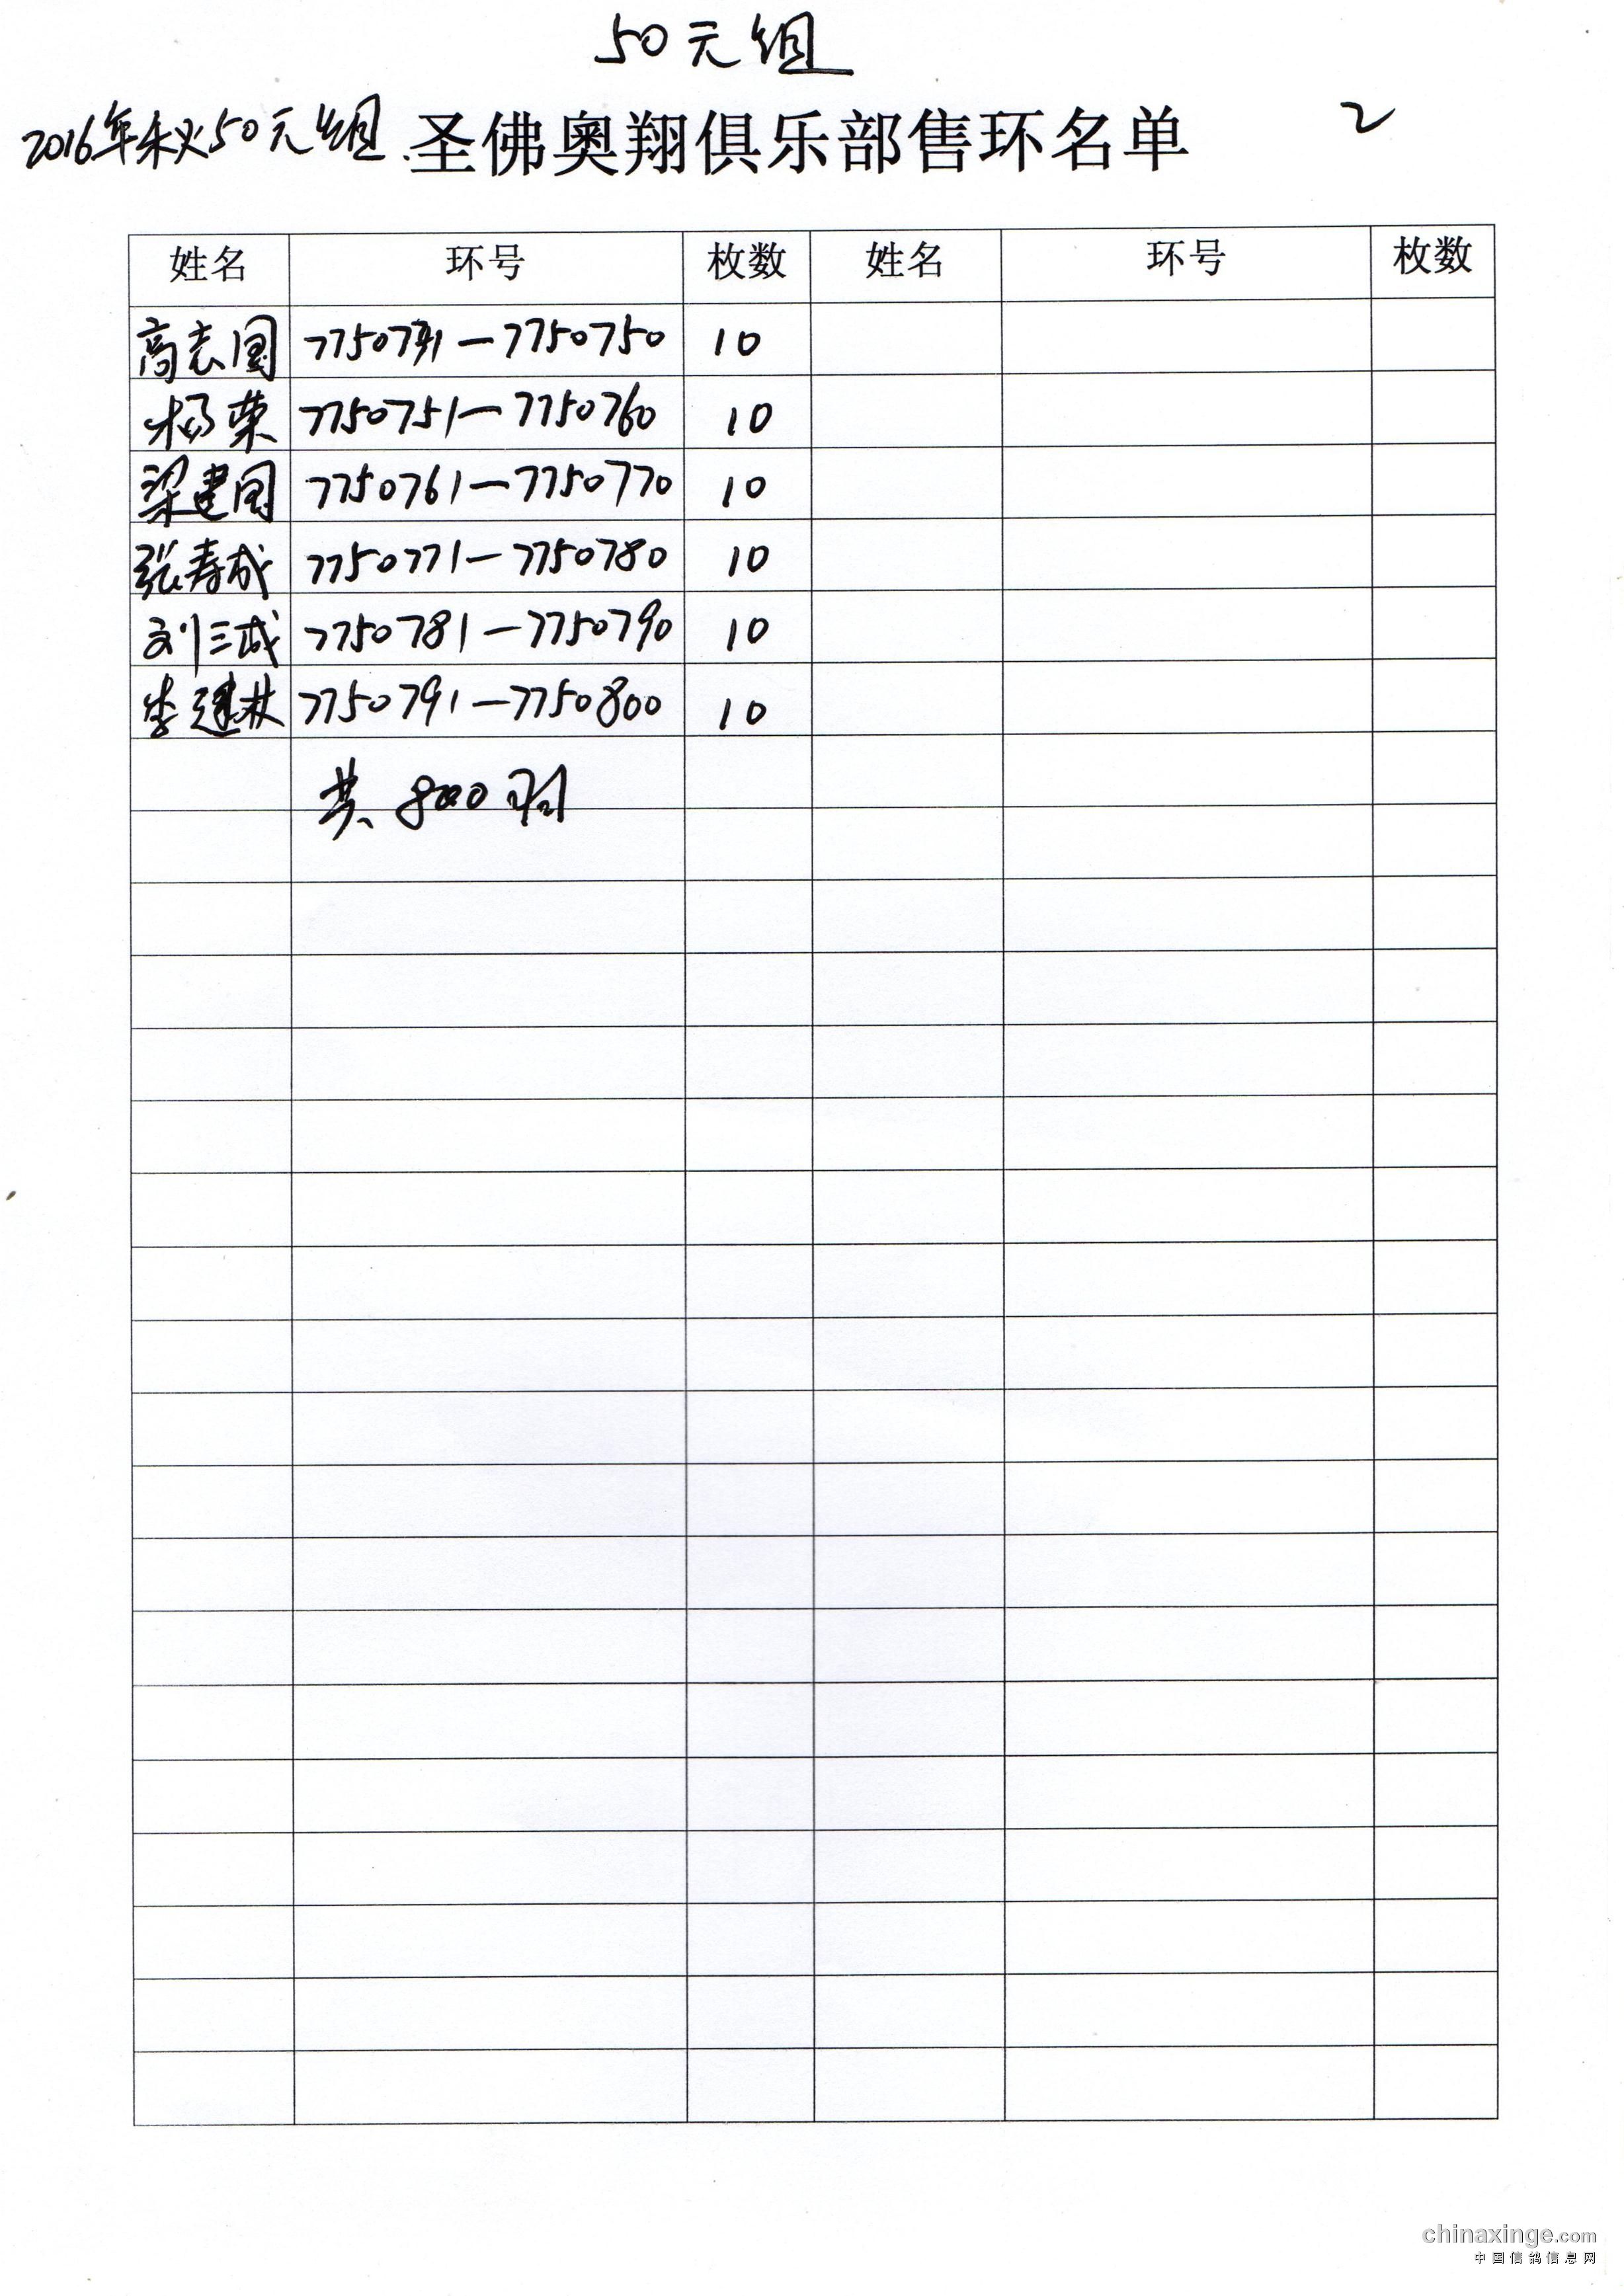 50元组
2016年秋50元组.圣佛奥翔俱乐部售环名单 2
姓名 环号 枚数 姓名 环号 枚数
高志国 7750741—7750750 10
杨荣 7750751—7750760 10
梁建国 7750761—7750770 10
张寿成 7750771—7750780 10
刘三成 7750781—7750790 10
李建林 7750791—7750800 10
共800羽
chinaxinge.com
中国信鸽信息网